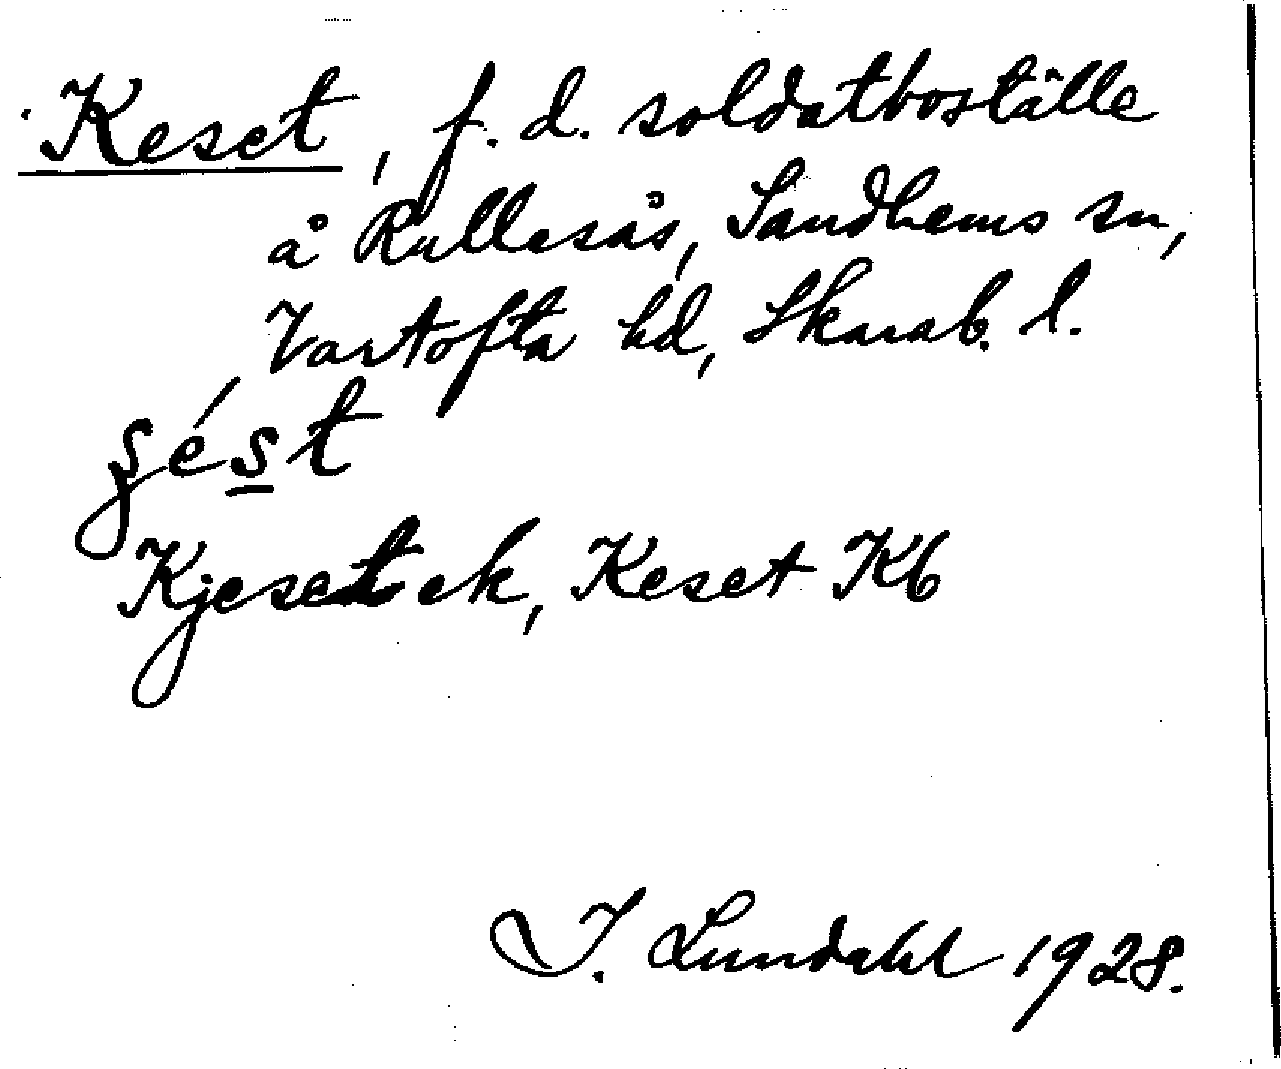 Keset, f. d. soldatboställe
å Rullesås, Sandhems sn,
Vartofta hd, Skarab. l.
Kjeset ek, Keset Kb
I. Lundahl 1928.